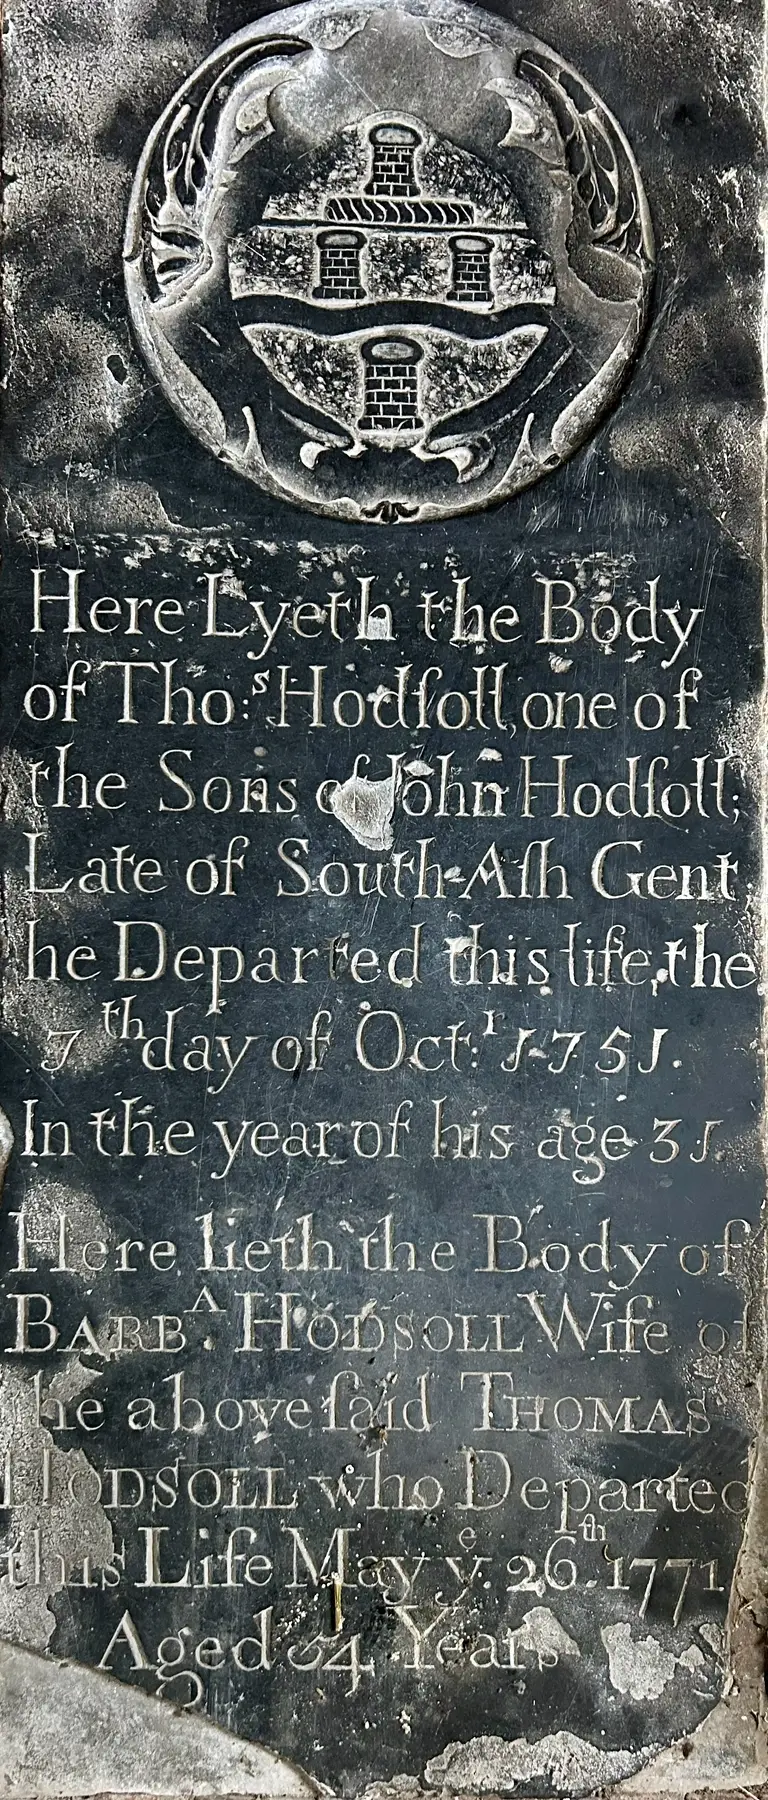 Here Lyeth the Body
of Tho:ˢ Hodſoll, one of
the Sons of John Hodſoll;
Late of South-Aſh Gent,
he Departed this life, the
7ᵗʰ day of Oct:ʳ 1751.
In the year of his age 31.
Here lieth the Body of
BARBᴬ. HODSOLL Wife of
he above ſaid THOMAS
HODSOLL who Departed
this Life May yᵉ. 26ᵗʰ. 1771
Aged 54 Years